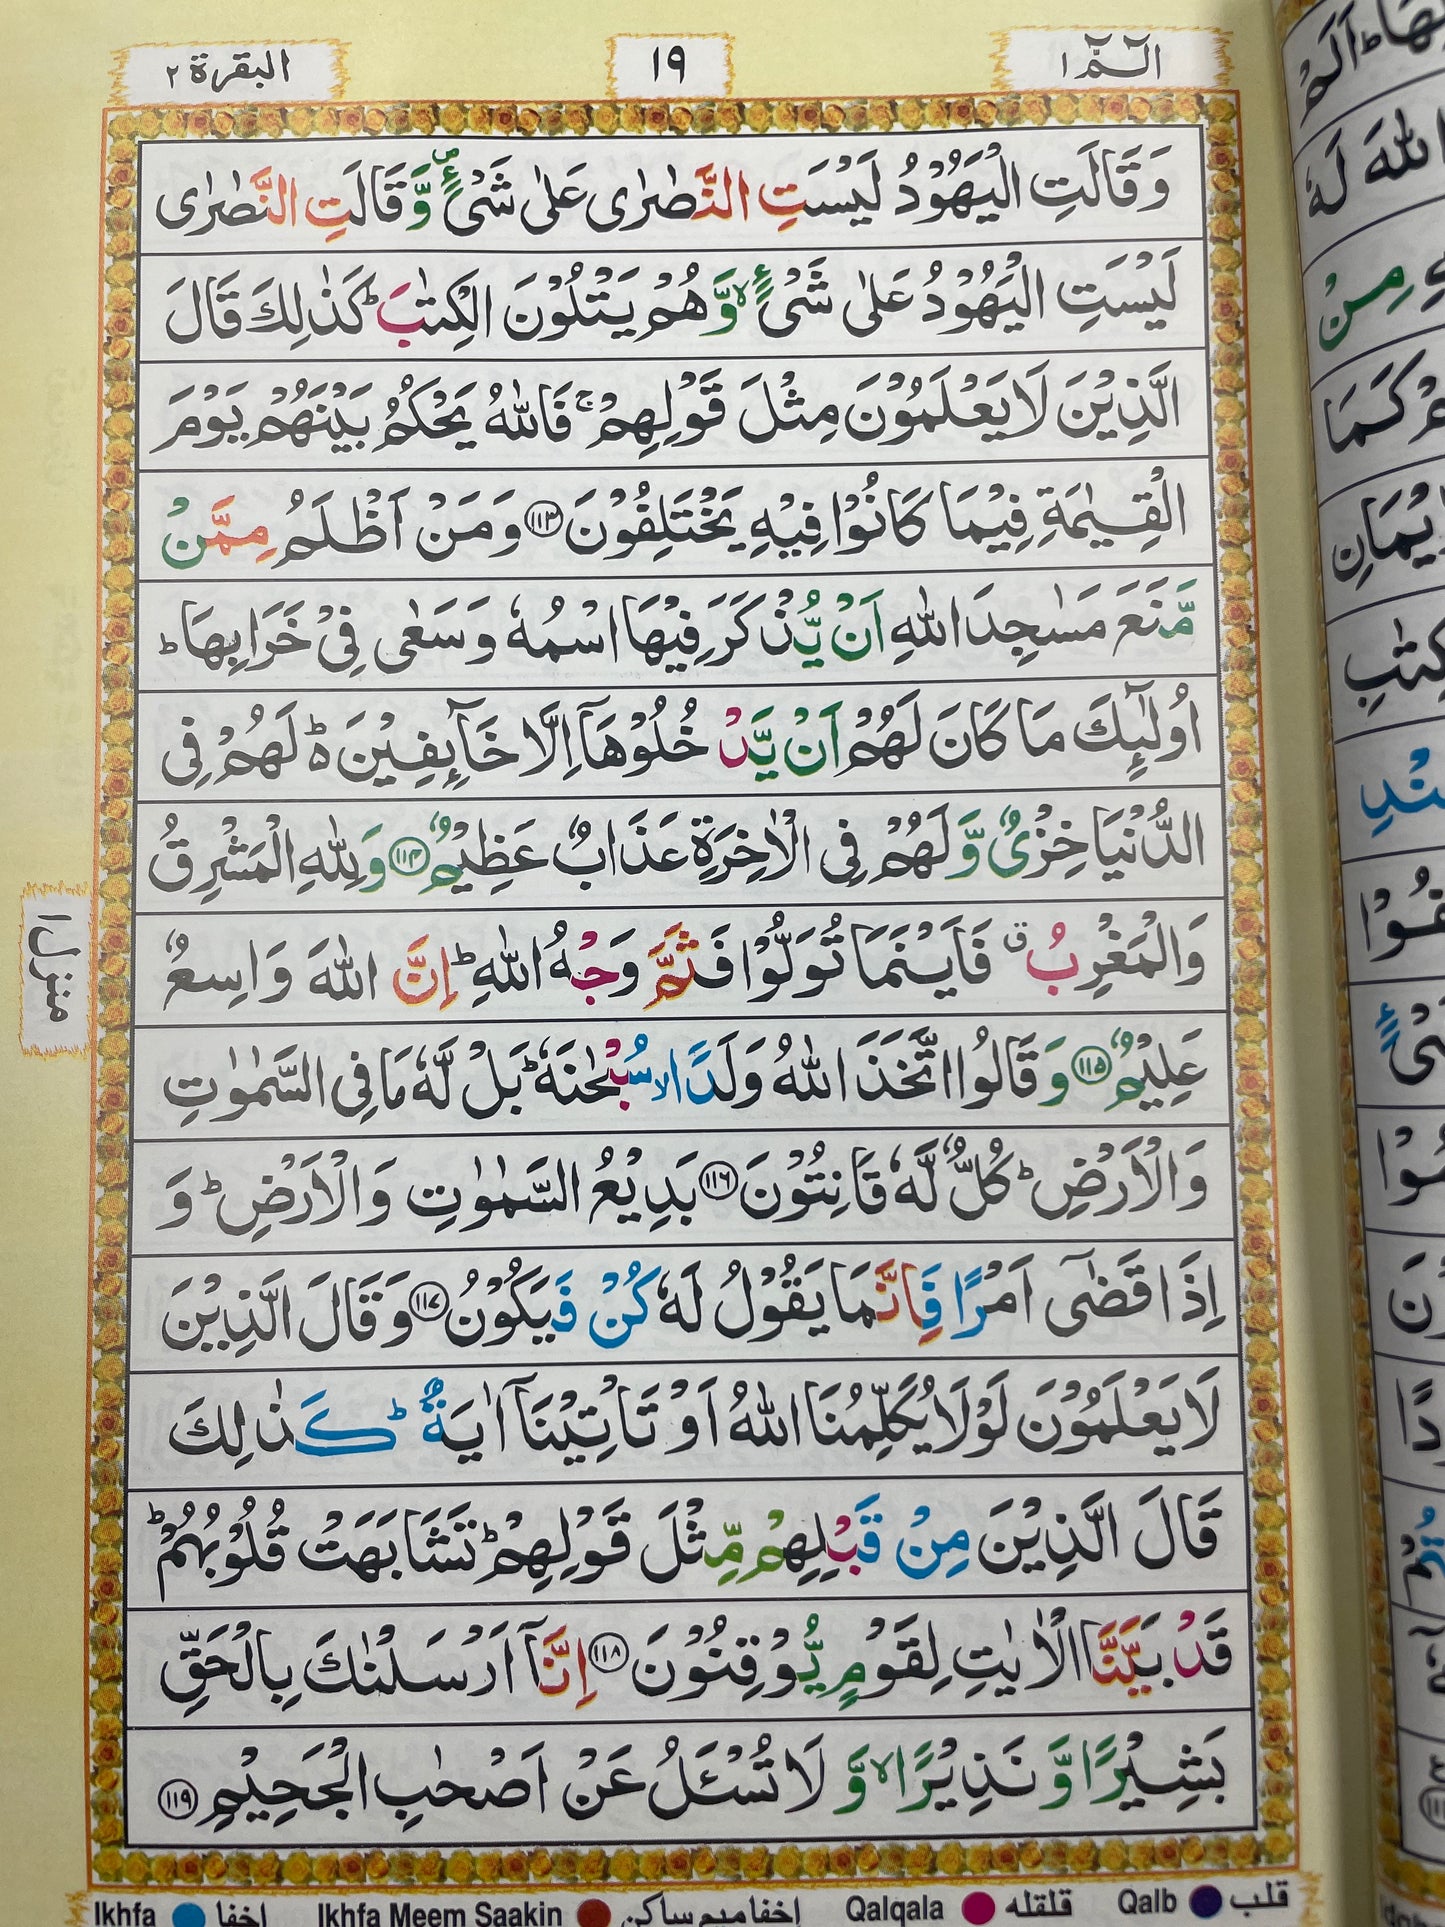 الٓـمّٓ ١
١٩
البقرة ٢
وَقَالَتِ الْيَهُوْدُ لَيْسَتِ النَّصٰرٰى عَلٰى شَيْءٍ ۪ وَّقَالَتِ النَّصٰرٰى
لَيْسَتِ الْيَهُوْدُ عَلٰى شَيْءٍ ۙ وَّهُمْ يَتْلُوْنَ الْكِتٰبَ ؕ كَذٰلِكَ قَالَ
الَّذِيْنَ لَا يَعْلَمُوْنَ مِثْلَ قَوْلِهِمْ ۚ فَاللّٰهُ يَحْكُمُ بَيْنَهُمْ يَوْمَ
الْقِيٰمَةِ فِيْمَا كَانُوْا فِيْهِ يَخْتَلِفُوْنَ ١١٣ وَمَنْ اَظْلَمُ مِمَّنْ
مَّنَعَ مَسٰجِدَ اللّٰهِ اَنْ يُّذْكَرَ فِيْهَا اسْمُهٗ وَسَعٰى فِيْ خَرَابِهَا ؕ
اُولٰٓئِكَ مَا كَانَ لَهُمْ اَنْ يَّدْخُلُوْهَاۤ اِلَّا خَآئِفِيْنَ ؕ۬ لَهُمْ فِى
الدُّنْيَا خِزْىٌ وَّلَهُمْ فِى الْاٰخِرَةِ عَذَابٌ عَظِيْمٌ ١١٤ وَلِلّٰهِ الْمَشْرِقُ
وَالْمَغْرِبُ ۗ فَاَيْنَمَا تُوَلُّوْا فَثَمَّ وَجْهُ اللّٰهِ ؕ اِنَّ اللّٰهَ وَاسِعٌ
عَلِيْمٌ ١١٥ وَقَالُوا اتَّخَذَ اللّٰهُ وَلَدًا ۙ سُبْحٰنَهٗ ؕ بَلْ لَّهٗ مَا فِى السَّمٰوٰتِ
وَالْاَرْضِ ؕ كُلٌّ لَّهٗ قَانِتُوْنَ ١١٦ بَدِيْعُ السَّمٰوٰتِ وَالْاَرْضِ ؕ وَ
اِذَا قَضٰٓى اَمْرًا فَاِنَّمَا يَقُوْلُ لَهٗ كُنْ فَيَكُوْنُ ١١٧ وَقَالَ الَّذِيْنَ
لَا يَعْلَمُوْنَ لَوْلَا يُكَلِّمُنَا اللّٰهُ اَوْ تَاْتِيْنَاۤ اٰيَةٌ ؕ كَذٰلِكَ
قَالَ الَّذِيْنَ مِنْ قَبْلِهِمْ مِّثْلَ قَوْلِهِمْ ؕ تَشَابَهَتْ قُلُوْبُهُمْ ؕ
قَدْ بَيَّنَّا الْاٰيٰتِ لِقَوْمٍ يُّوْقِنُوْنَ ١١٨ اِنَّاۤ اَرْسَلْنٰكَ بِالْحَقِّ
بَشِيْرًا وَّنَذِيْرًا ۙ وَّلَا تُسْـَٔلُ عَنْ اَصْحٰبِ الْجَحِيْمِ ١١٩
منزل ١
قلب Qalb قلقله Qalqala إخفا ميم ساكن Ikhfa Meem Saakin إخفا Ikhfa